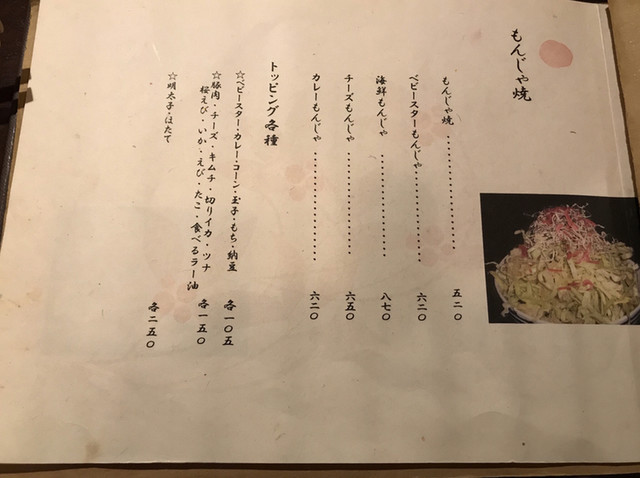 もんじゃ焼
もんじゃ焼 五二〇
ベビースターもんじゃ 六二〇
海鮮もんじゃ 八七〇
チーズもんじゃ 六五〇
カレーもんじゃ 六二〇
トッピング各種
☆ベビースター・カレー・コーン・玉子・もち・納豆 各一〇五
☆豚肉・チーズ・キムチ・切りイカ・ツナ
桜えび・いか・えび・たこ・食べるラー油 各一五〇
☆明太子・ほたて 各二五〇